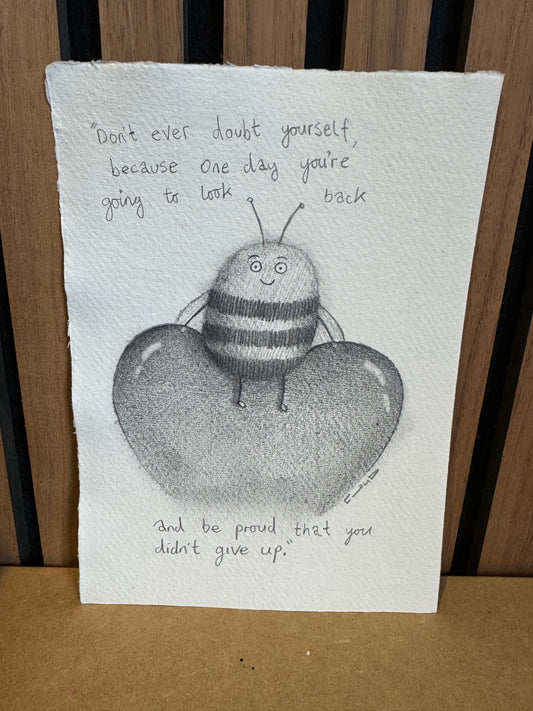 "Don't ever doubt yourself,
because one day you're
going to look back
and be proud that you
didn't give up."